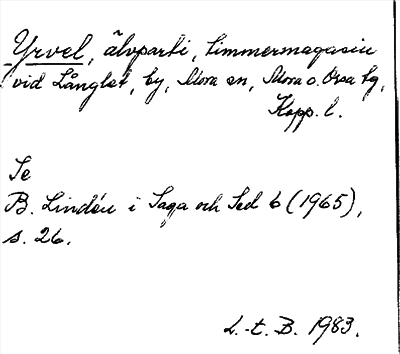 Yrvel, älvparti, timmermagasin
vid Långlet, by, Mora sn, Mora o. Orsa tg,
Kopp. l.
Se
B. Lindén i Saga och Sed 6 (1965),
s. 26.
L.-t. B. 1983.